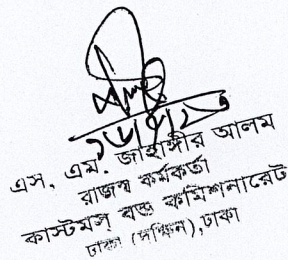 এস, এম. জাহাঙ্গীর আলম
রাজস্ব কর্মকর্তা
কাস্টমস্ বন্ড কমিশনারেট
ঢাকা (দক্ষিন), ঢাকা